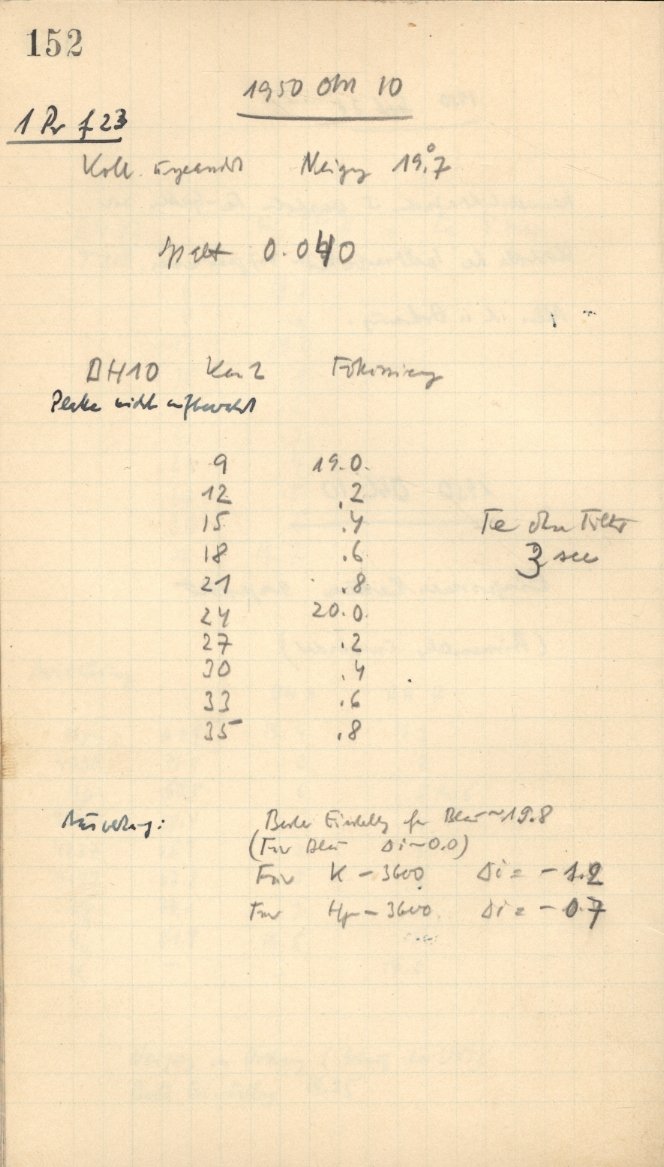 152
1950 Okt 10
1 Pr f 23
Koll. Neigg 19.°7
Spalt 0.040
DH10 Kas 2 Fokussierung
Platte nicht aufbewahrt
9 19.0.
12 .2
15 .4 Fe ohne Filter
18 .6 3 sec
21 .8
24 20.0.
27 .2
30 .4
33 .6
35 .8
Beste Einstellg für Blau ~ 19.8
(Für Blau Δi ~ 0.0)
Für K - 3600 Δi = - 1.2
Für Hγ - 3600 Δi = - 0.7